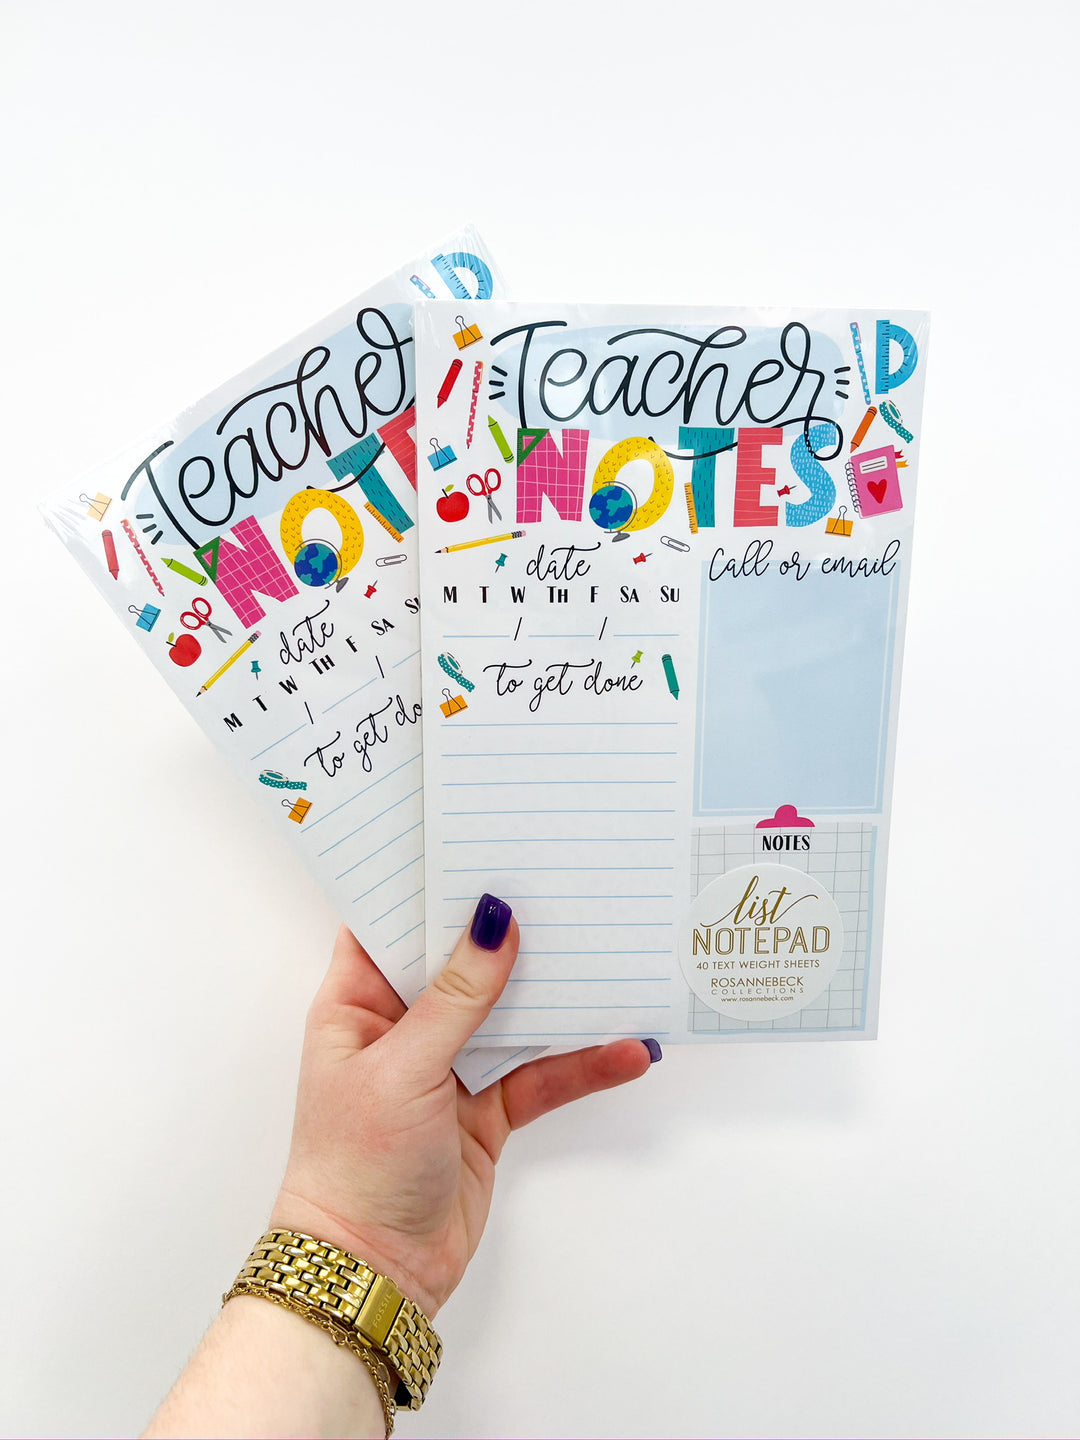 Teacher
NOTES
date
M T W TH F SA SU
/ /
to get done
Call or email
NOTES
list
NOTEPAD
40 TEXT WEIGHT SHEETS
ROSANNEBECK
COLLECTIONS
www.rosannebeck.com
Teacher
NOTE
date
M T W TH F SA SU
/ /
to get do
FOSSIL